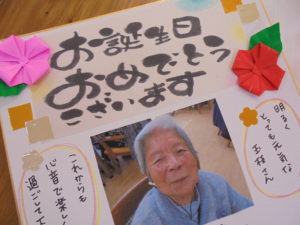 お誕生日
おめでとう
ございます
明るく
とっても元気な
玉枝さん
これからも
心音で楽しく
過ごして下